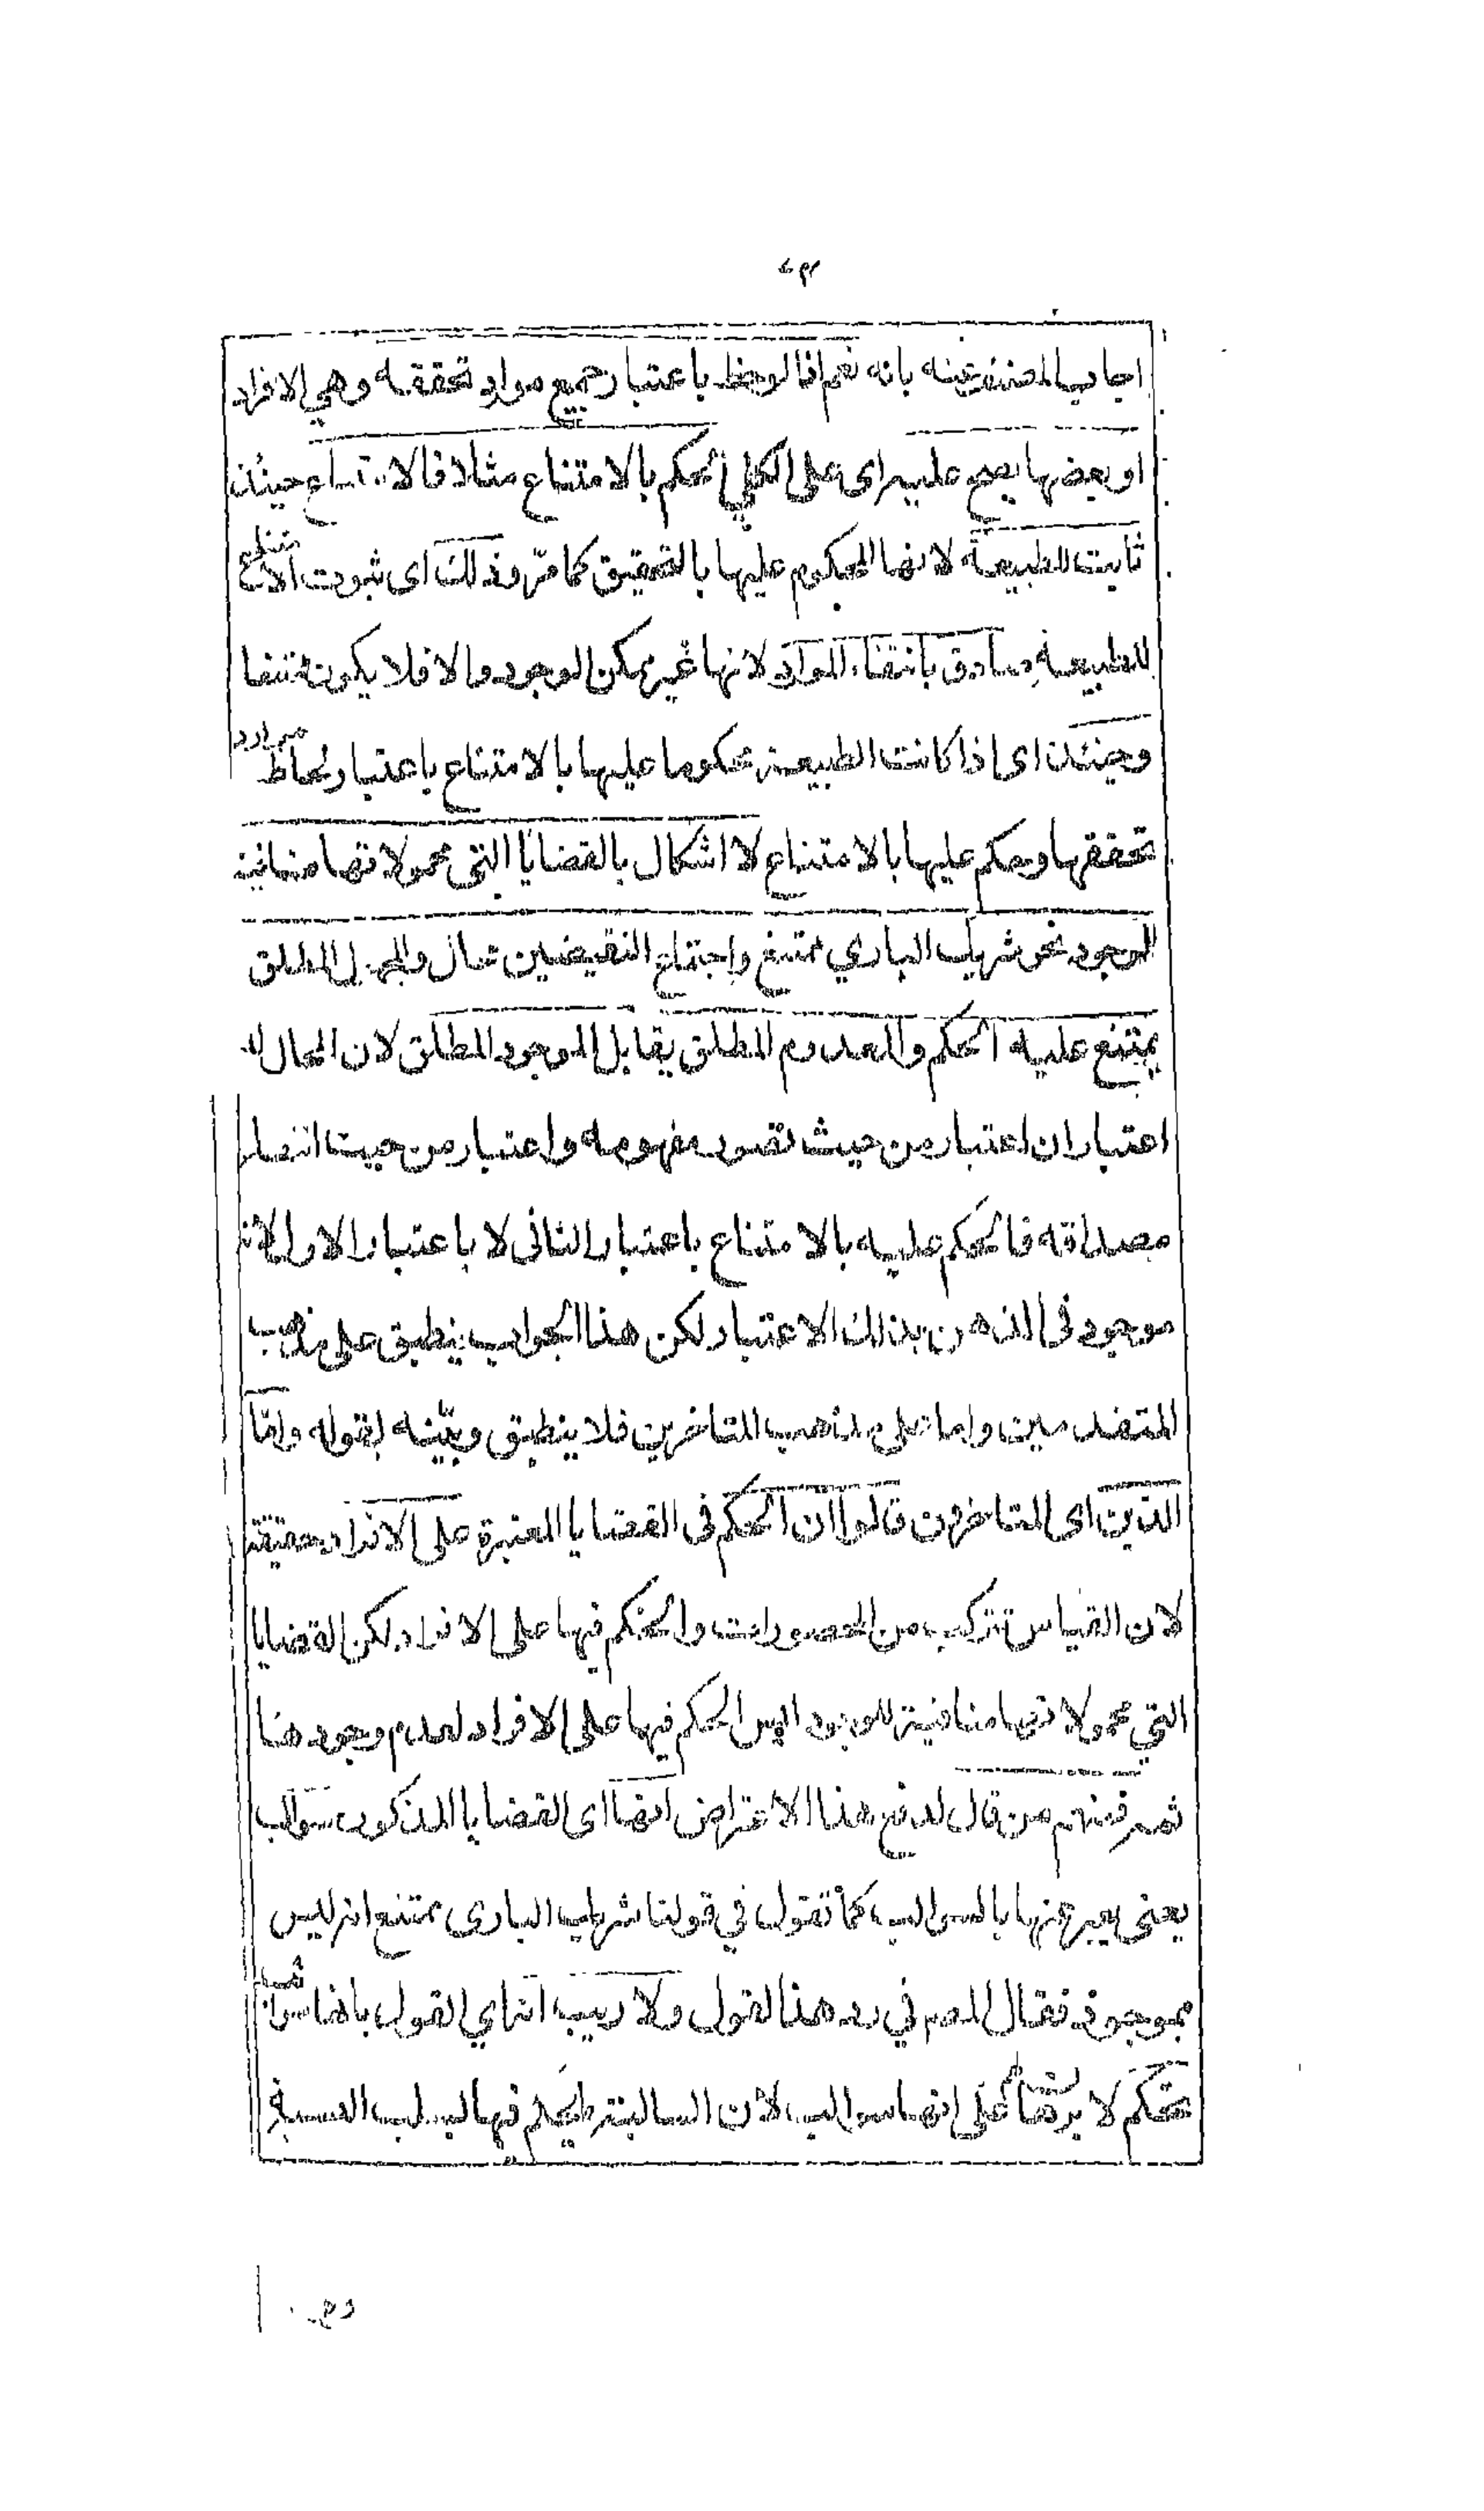 اجاب المصنف عنه بانه نعم اذا لوحظ باعتبار جميع موارد تحققه وهي الافراد
او بعضها يصح عليه اى على الكلي الحكم بالامتناع مثلا فالامتناع حينئذ
ثابت للطبيعة لانها المحكوم عليها بالتحقيق كما مرّ وذلك اى ثبوت الامتناع
للطبيعة صادق بانتفاء الموارد لانها غير ممكن الوجود والا فلا يكون ممتنعا
وحينئذ اى اذا كانت الطبيعة محكوما عليها بالامتناع باعتبار لحاظ موارد
تحققها وحكم عليها بالامتناع لا اشكال بالقضايا التي محمولاتها منافية
الوجود نحو شريك الباري ممتنع واجتماع النقيضين محال والمجهول المطلق
يمتنع عليه الحكم والمعدوم المطلق يقابل الموجود المطلق لان المحال له
اعتباران اعتبار من حيث تصور مفهومه واعتبار من حيث انتفاء
مصداقه فالحكم عليه بالامتناع باعتبار الثانى لا باعتبار الاول لانه
موجود فى الذهن بذلك الاعتبار لكن هذا الجواب ينطبق على مذهب
المتقدمين واما على مذهب المتاخرين فلا ينطبق وبيّنه بقوله وامّا
الذين اى المتاخرون قالوا ان الحكم فى القضايا المعتبرة على الافراد حقيقة
لان القياس تتركب من المحصورات والحكم فيها على الافراد لكن القضايا
التي محمولاتها منافية للوجود ليس الحكم فيها على الافراد لعدم وجودها
فمنهم من قال لدفع هذا الاعتراض انها اى القضايا المذكورة سوالب
يعنى يعبر عنها بالسوالب كما تقول في قولنا شريك البارى ممتنع انه ليس
بموجود فقال المصـ في رد هذا القول ولا ريب انه اي القول بانها سوالب
تحكم لا برهان على انها سوالب لان السالبة يحكم فيها بسلب النسبة